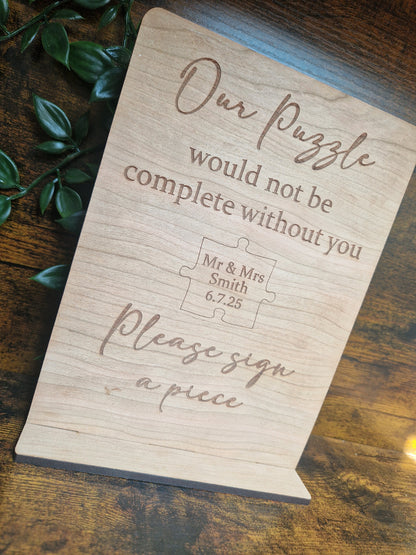 Our Puzzle
would not be
complete without you
Mr & Mrs
Smith
6.7.25
Please sign
a piece